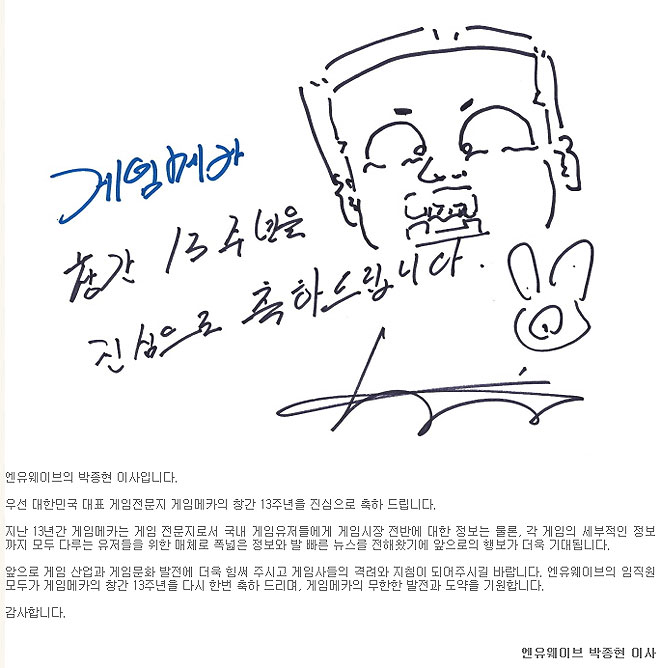 게임메카
창간 13주년을
진심으로 축하드립니다.
엔유웨이브의 박종현 이사입니다.
우선 대한민국 대표 게임전문지 게임메카의 창간 13주년을 진심으로 축하 드립니다.
지난 13년간 게임메카는 게임 전문지로서 국내 게임유저들에게 게임시장 전반에 대한 정보는 물론, 각 게임의 세부적인 정보
까지 모두 다루는 유저들을 위한 매체로 폭넓은 정보와 발 빠른 뉴스를 전해왔기에 앞으로의 행보가 더욱 기대됩니다.
앞으로 게임 산업과 게임문화 발전에 더욱 힘써 주시고 게임사들의 격려와 지침이 되어주시길 바랍니다. 엔유웨이브의 임직원
모두가 게임메카의 창간 13주년을 다시 한번 축하 드리며, 게임메카의 무한한 발전과 도약을 기원합니다.
감사합니다.
엔유웨이브 박종현 이사